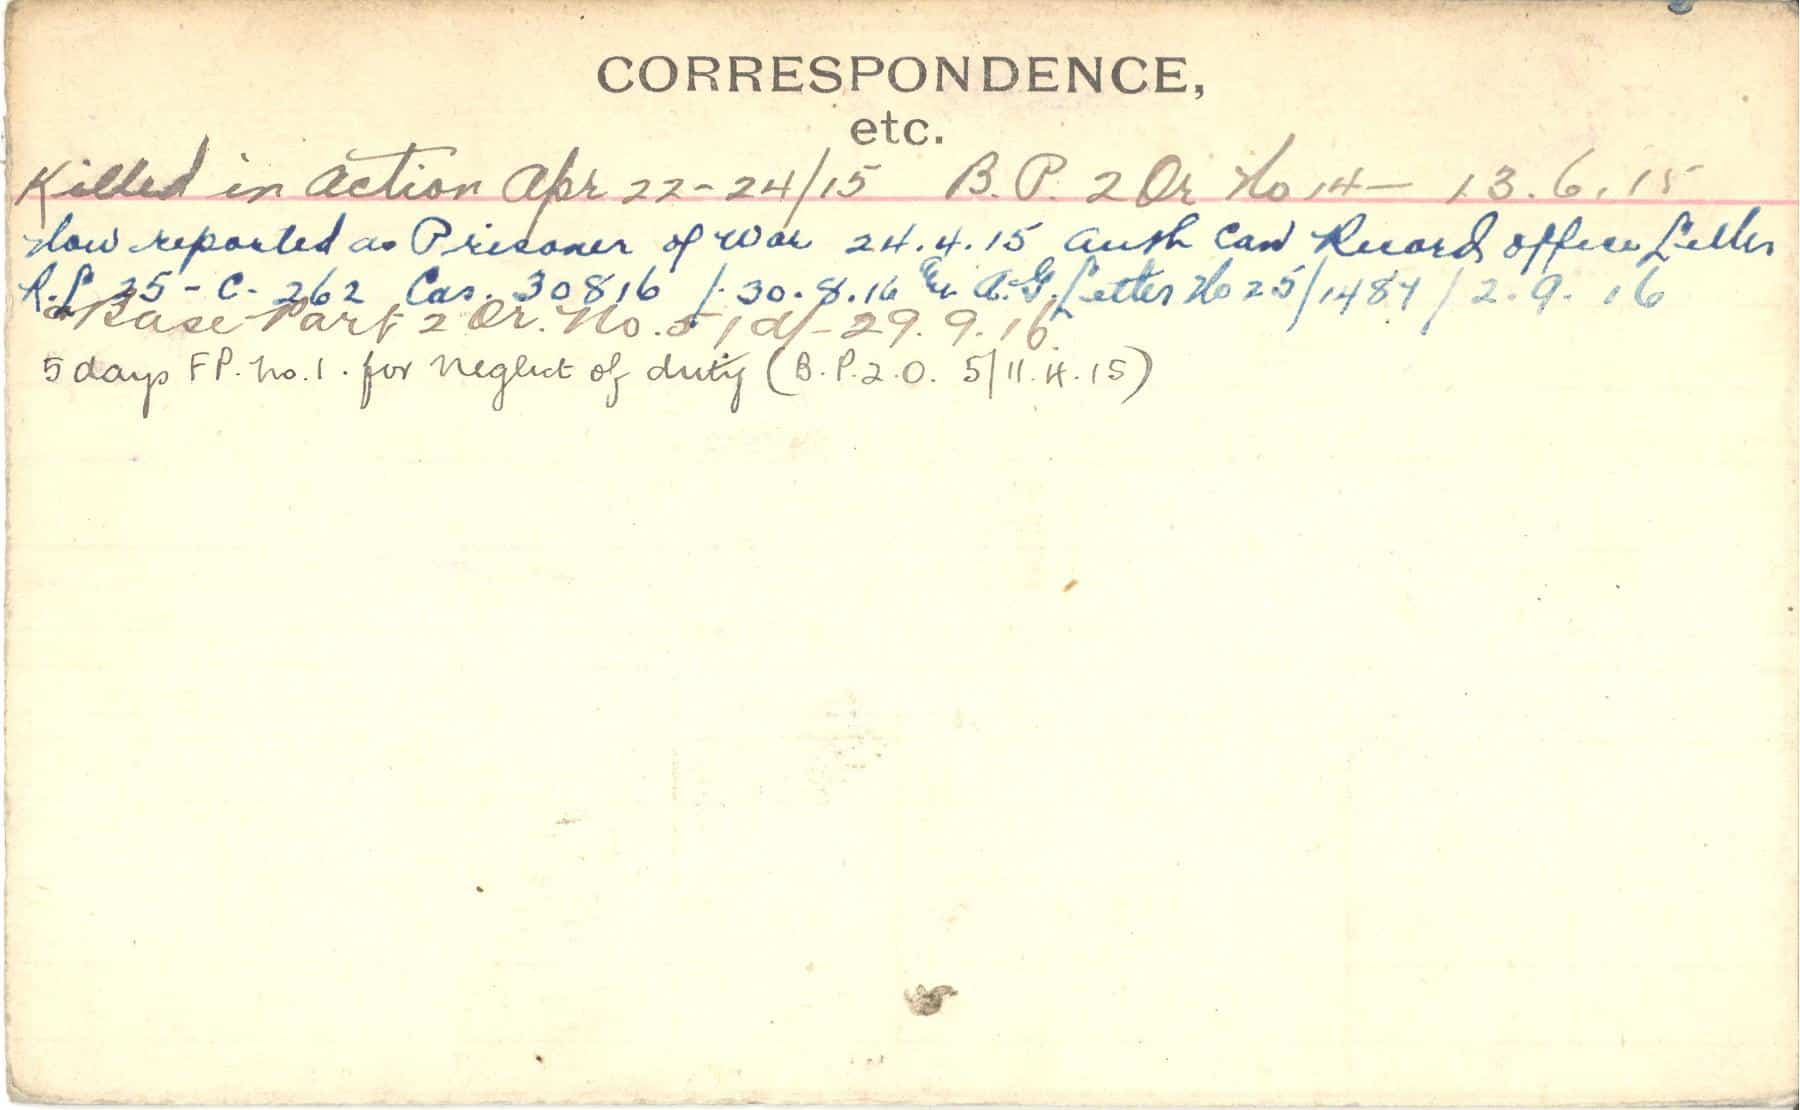 CORRESPONDENCE,
etc.
Killed in action Apr 22-24/15 B.P. 2 Or No 14 - 13.6.15
Now reported as Prisoner of War 24.4.15 auth Can Record office Letter
R.L 25-C-262 Cas. 30816 /. 30.8.16 A.G. Letter No 25/1487/2.9.16
Base Part 2 Or. No. 51 d/- 29.9.16.
5 days F.P. No.1. for neglect of duty (B.P.2.O. 5/11.4.15)